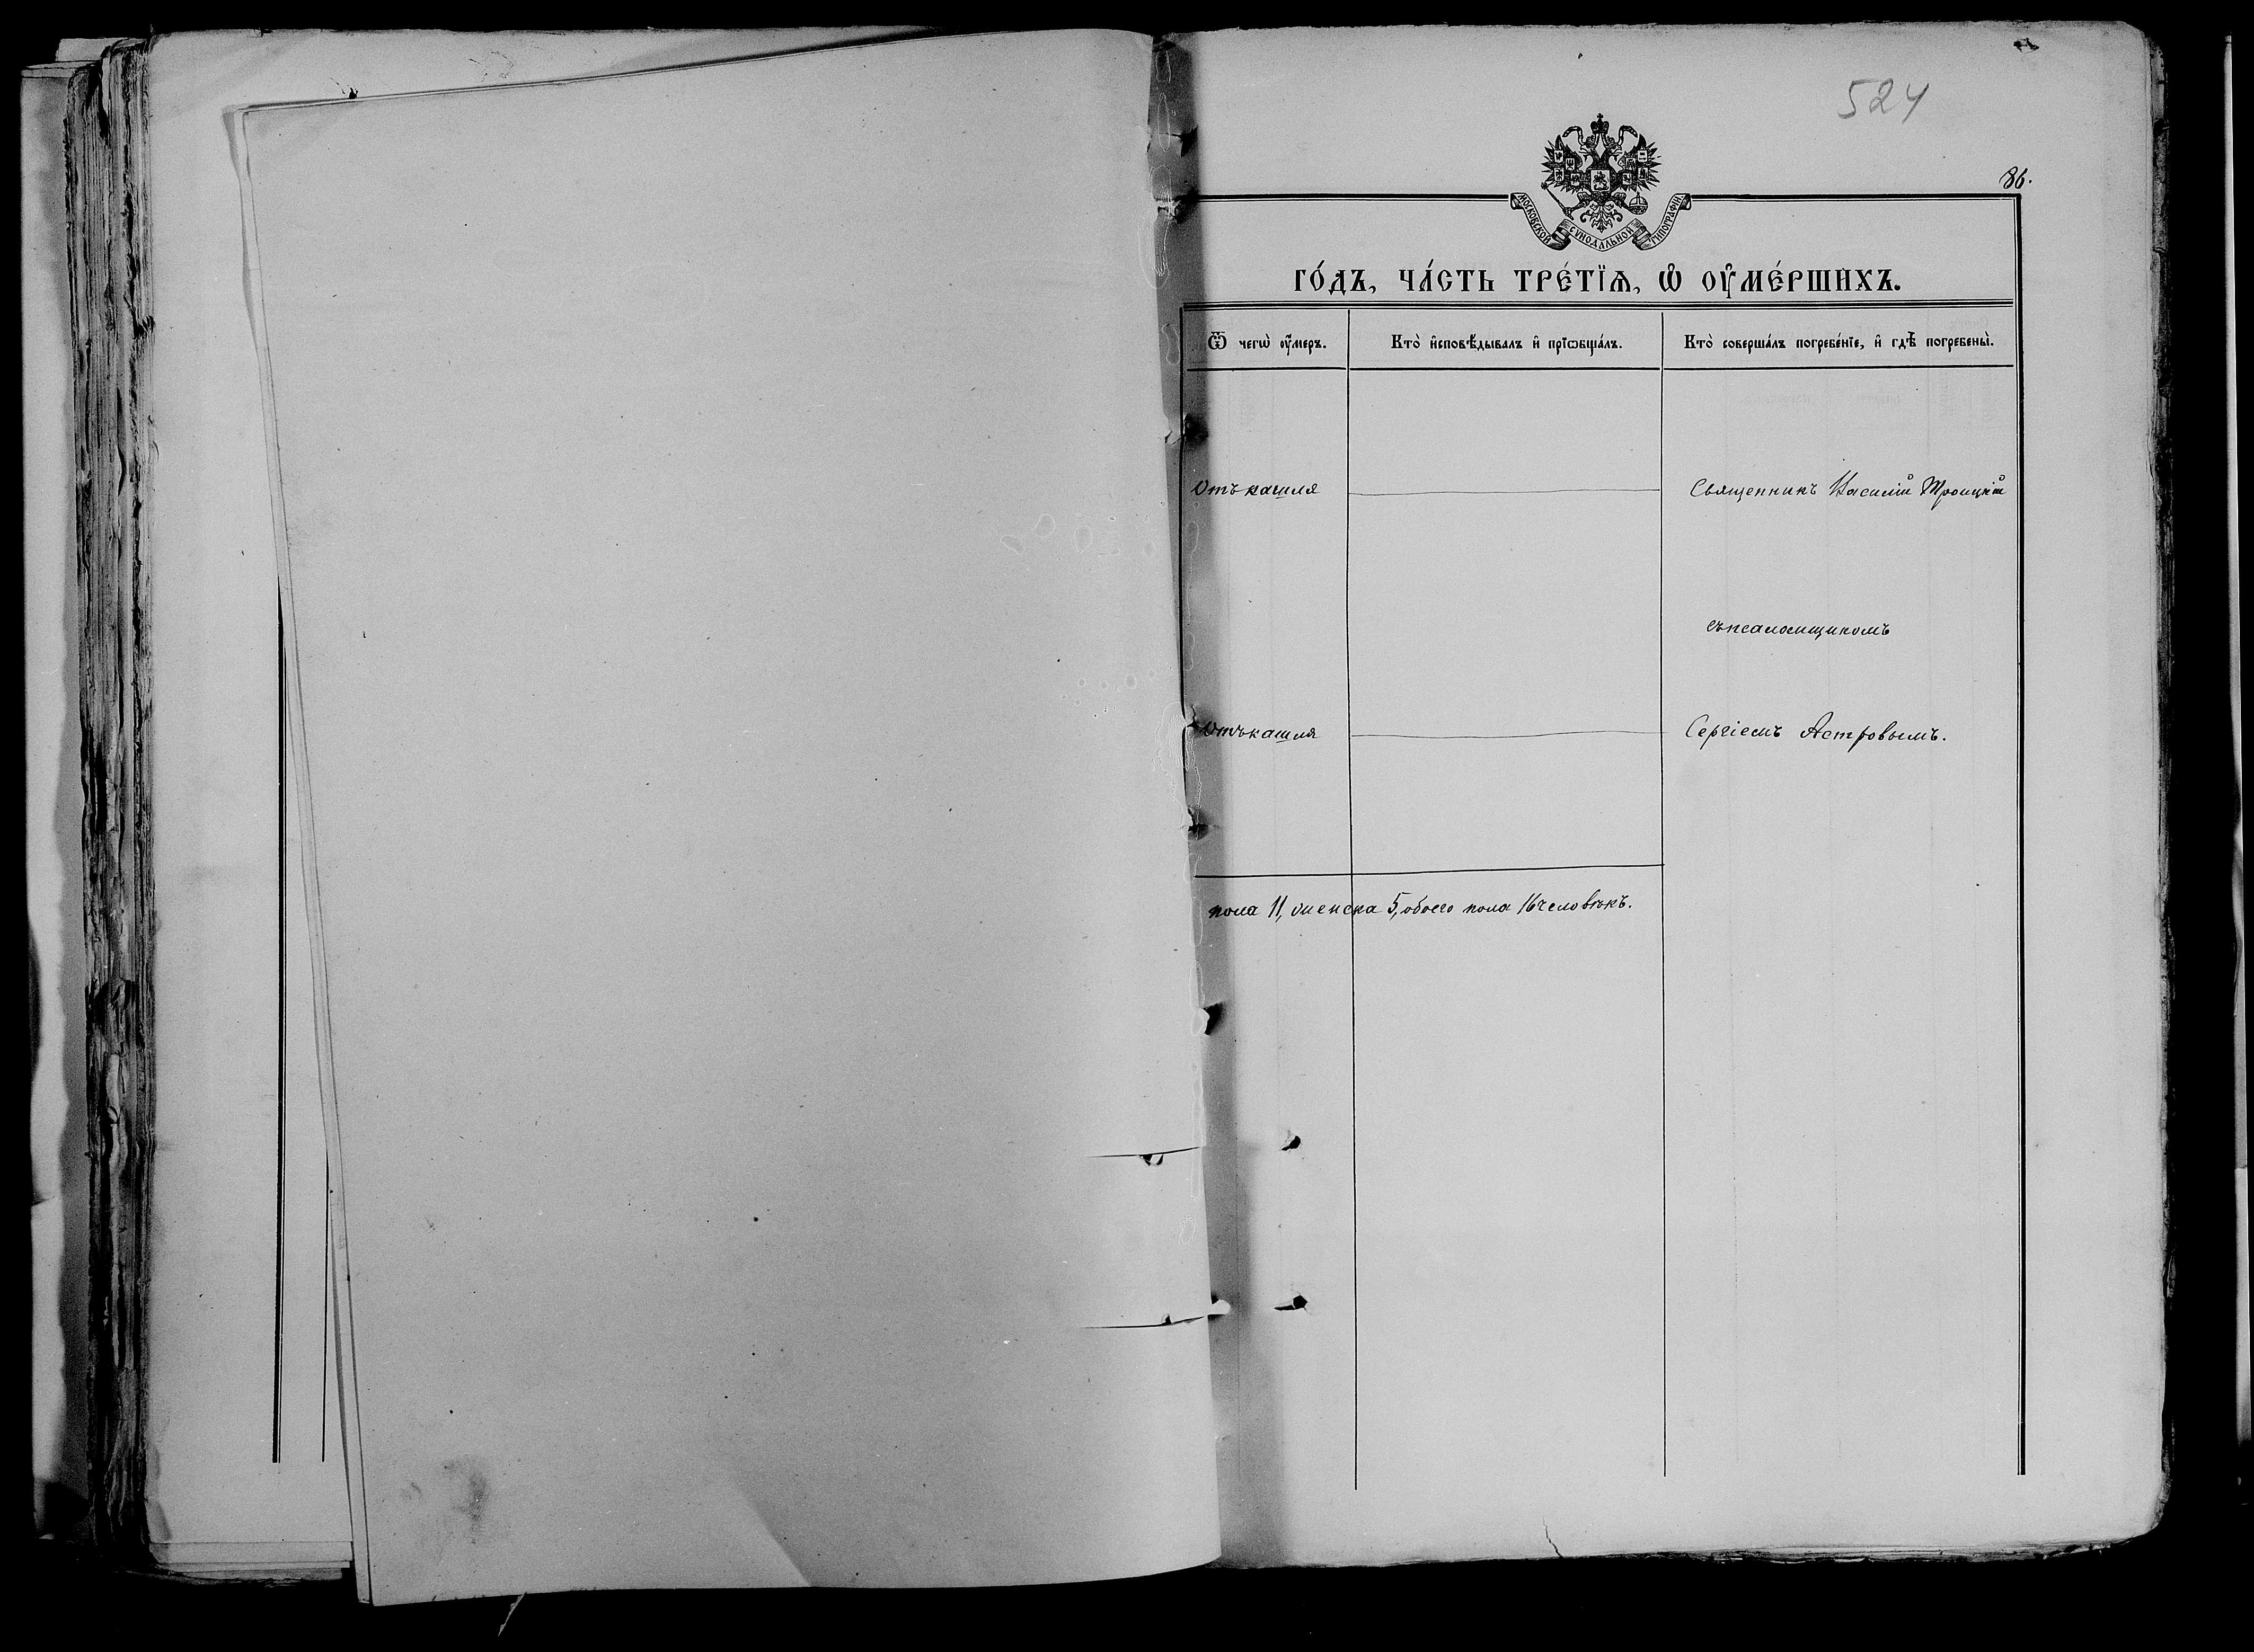 524
86.
МОСКОВСКОЙ СУНОДАЛЬНОЙ ТИПОГРАФІИ
ГО́ДЪ, ЧА́СТЬ ТРЕ́ТЇѦ, Ѡ҆ ОУ҆МЕ́РШИХЪ.
Ѿ чегѡ̀ оу҆́меръ.
Кто̀ и҆сповѣ́дывалъ и҆ прїѡбща́лъ.
Кто̀ соверша́лъ погребе́нїе, и҆ гдѣ̀ погребены̀.
Отъ кашля
Священникъ Василій Троицкій
съ псаломщикомъ
Отъ кашля
Сергіемъ Астровымъ.
пола 11, женска 5, обоего пола 16 человѣкъ.